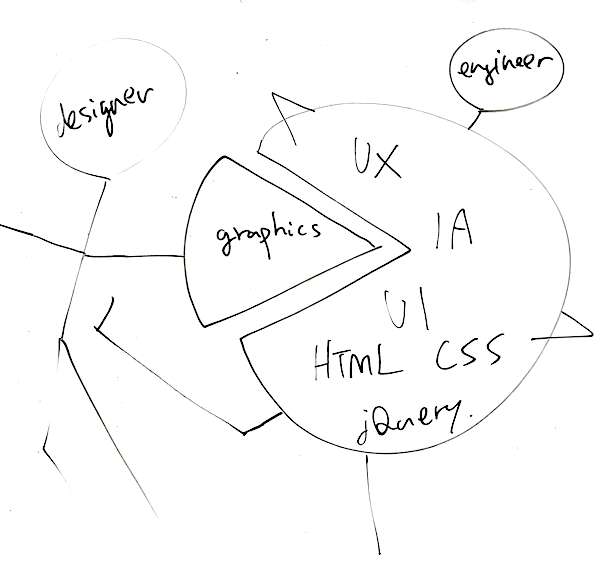 designer
engineer
graphics
UX
IA
UI
HTML CSS
jQuery.